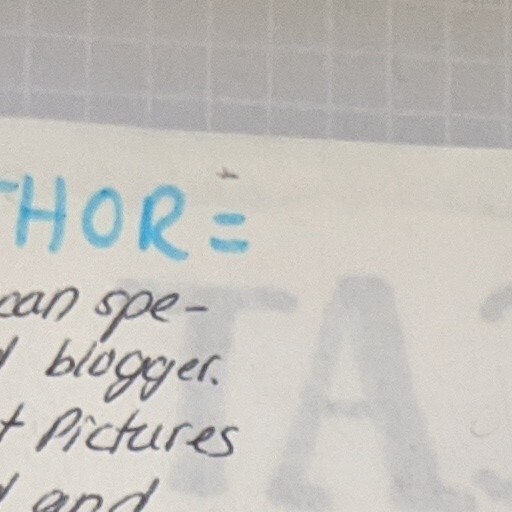 THOR =
can spe-
blogger.
Pictures
and